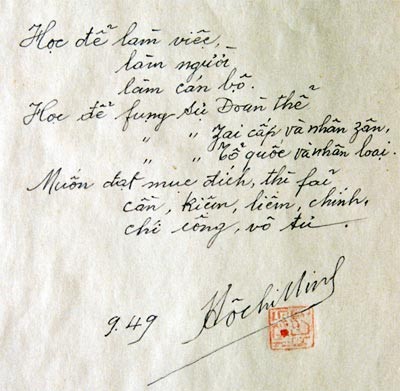 Học để làm việc,
làm người
làm cán bộ.
Học để fụng sự Đoàn thể
" " Zai cấp và nhân zân,
" " Tổ quốc và nhân loại.
Muốn đạt mục đích, thì fải
cần, kiệm, liêm, chính,
chí công, vô tư.
9.49 HồchíMinh